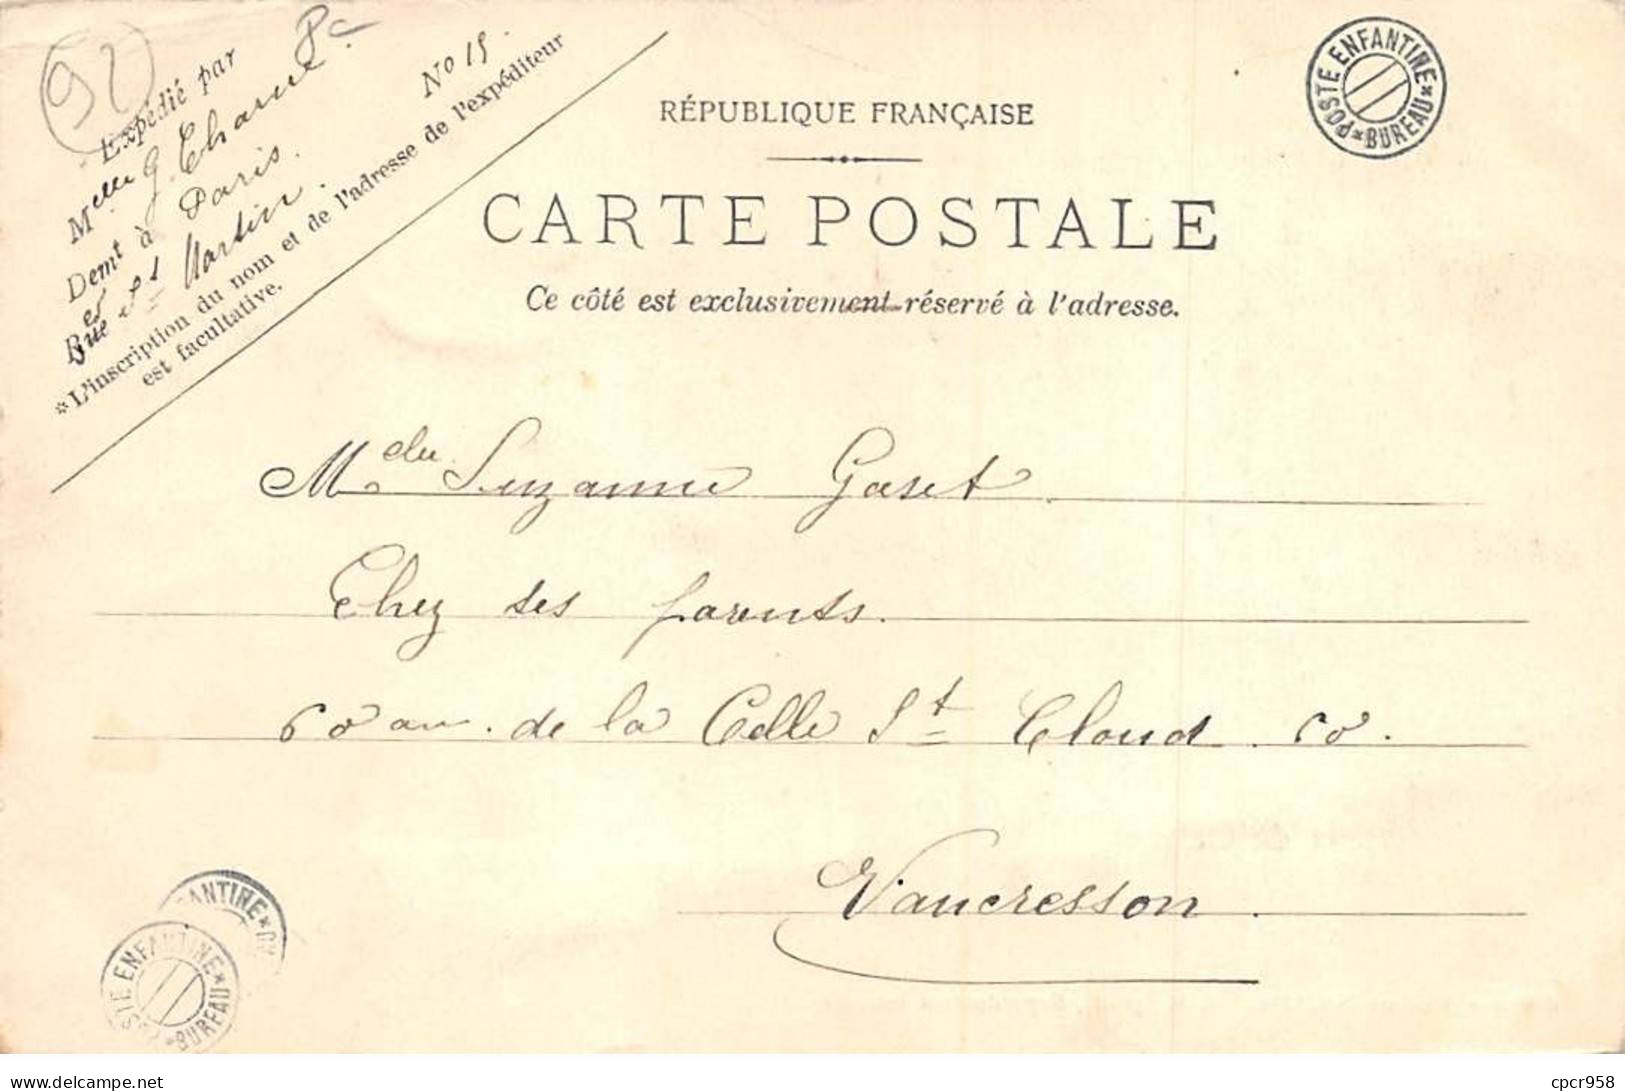 92
Expédié par
Melle G.
Demt à Paris.
Bue St Martin. No 15.
*L'inscription du nom et de l'adresse de l'expéditeur
est facultative.
POSTE ENFANTINE * BUREAU *
RÉPUBLIQUE FRANÇAISE
CARTE POSTALE
Ce côté est exclusivement réservé à l'adresse.
Suzanne Gaset
Chez ses parents.
60 av. de la Celle St Cloud. 60.
Vaucresson
ANTINE * BU
POSTE ENFANTINE * BUREAU *
delcampe.net
cpcr958